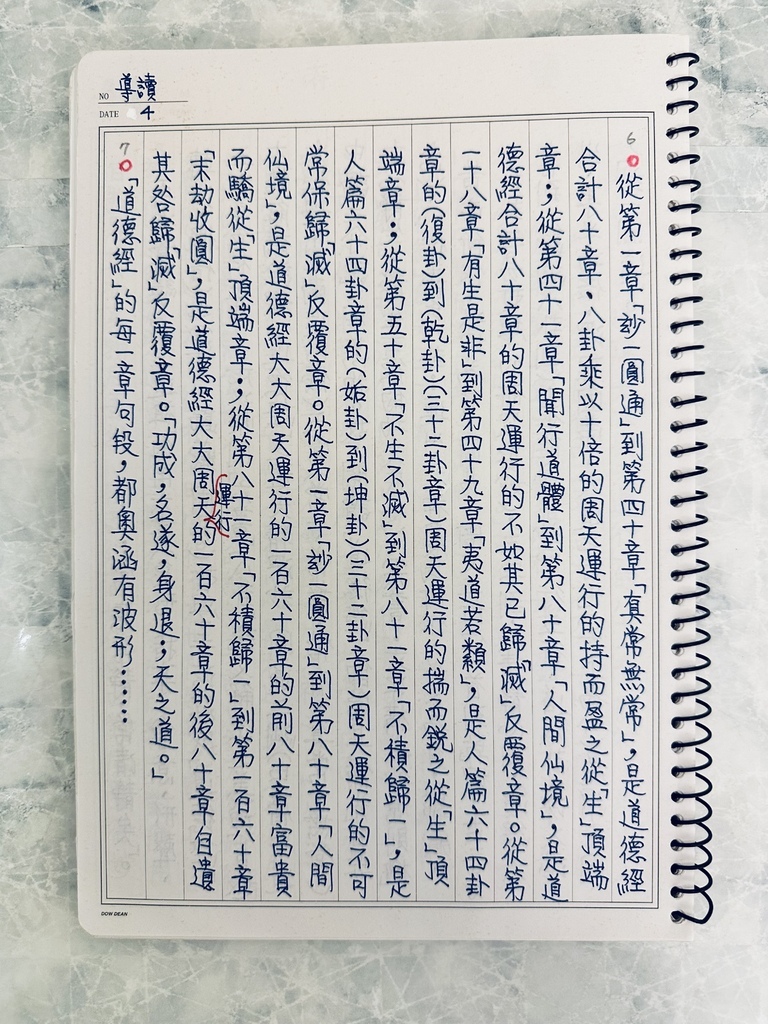 NO 導讀
DATE 4
6 從第一章「玅一圓通」到第四十章「真常無常」，是道德經
合計八十章、八卦乘以十倍的周天運行的持而盈之從「生」頂端
章；從第四十一章「聞行道體」到第八十章「人間仙境」，是道
德經合計八十章的周天運行的不如其已歸「滅」反覆章。從第
一十八章「有生是非」到第四十九章「夷道若纇」，是人篇六十四卦
章的(復卦)到(乾卦)(三十二卦章)周天運行的揣而銳之從「生」頂
端章；從第五十章「不生不滅」到第八十一章「不積歸一」，是
人篇六十四卦章的(姤卦)到(坤卦)(三十二卦章)周天運行的不可
常保歸「滅」反覆章。從第一章「玅一圓通」到第八十章「人間
仙境」，是道德經大大周天運行的一百六十章的前八十章富貴
而驕從「生」頂端章；從第八十一章「不積歸一」到第一百六十章
「末劫收圓」，是道德經大大周天運行的一百六十章的後八十章自遺
其咎歸「滅」反覆章。「功成，名遂，身退；天之道。」
7 「道德經」的每一章句段，都奧涵有波形⋯⋯
DOW DEAN